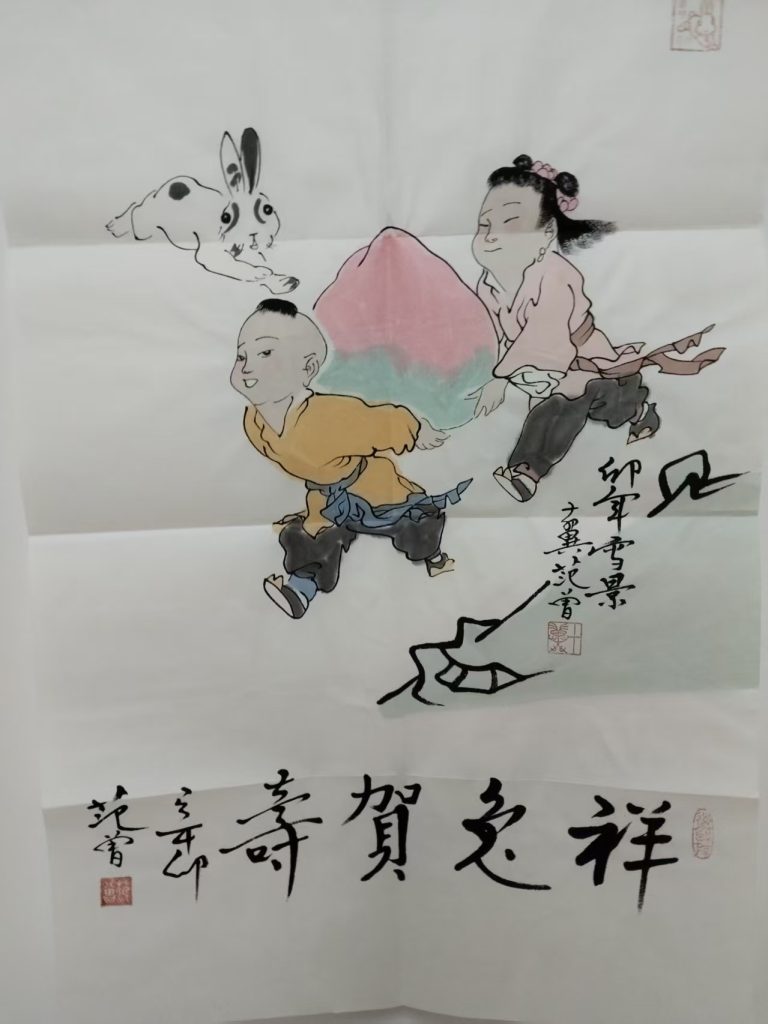 卯年雪景
十翼范曾
祥兔賀壽
辛卯
范曾